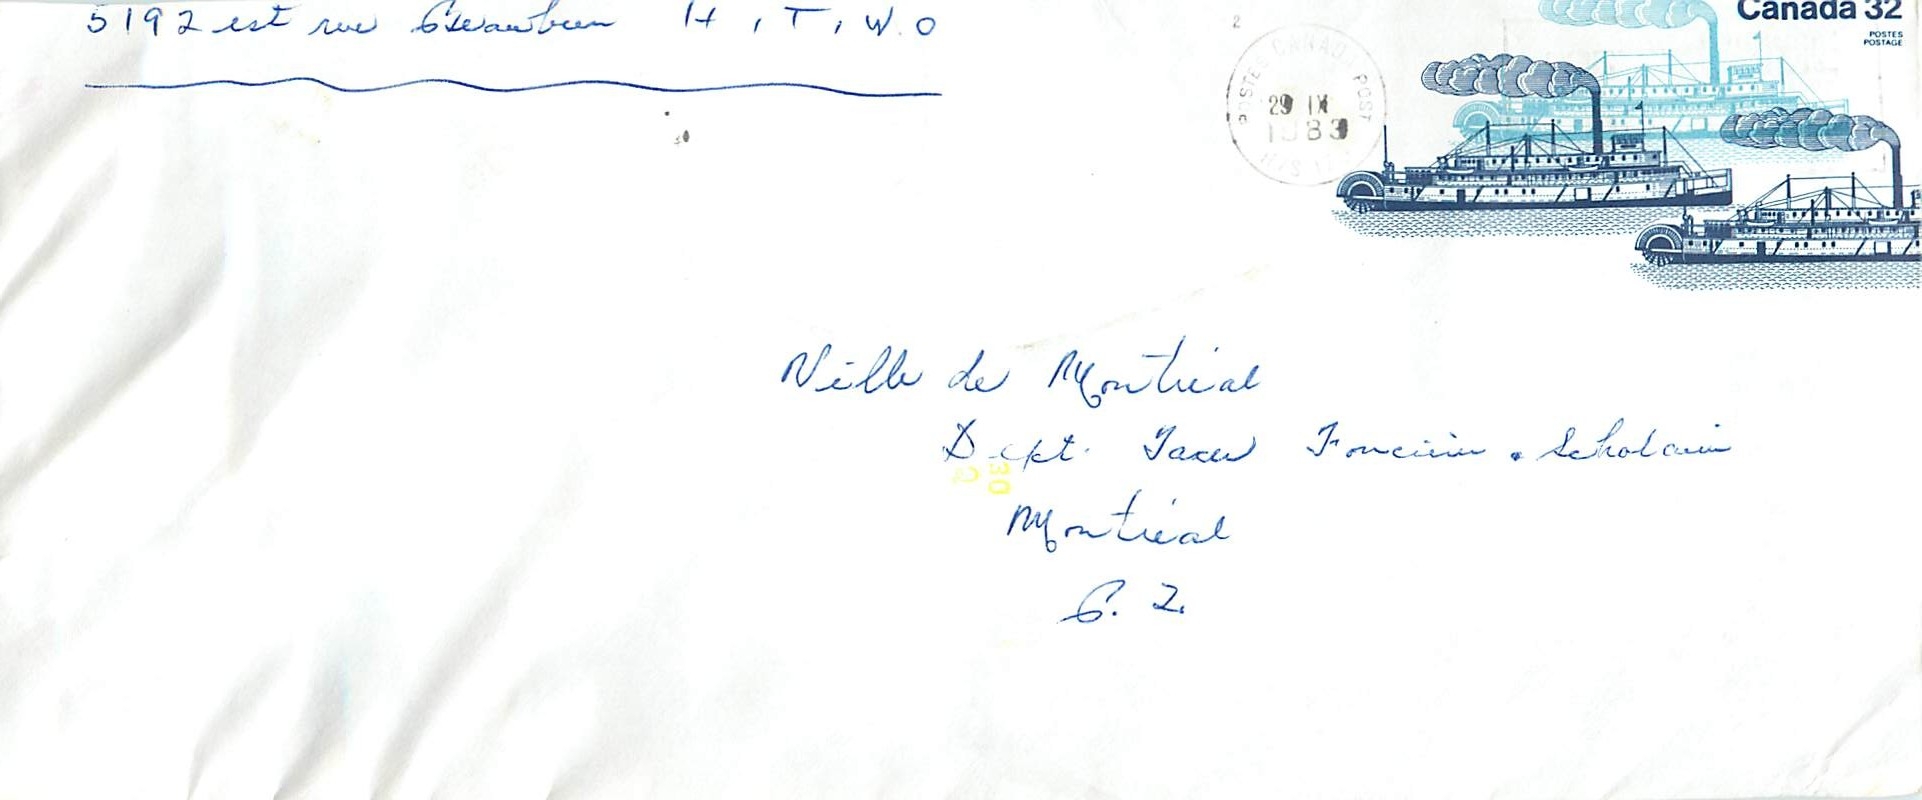 5192 est rue H.T.W.O
2
Canada 32
POSTES
POSTAGE
POSTES CANADA POST
29 IX
1983
Ville de Montréal
Dept. Taxes Foncière & Scholaire
30
2
Montréal
P. Q.